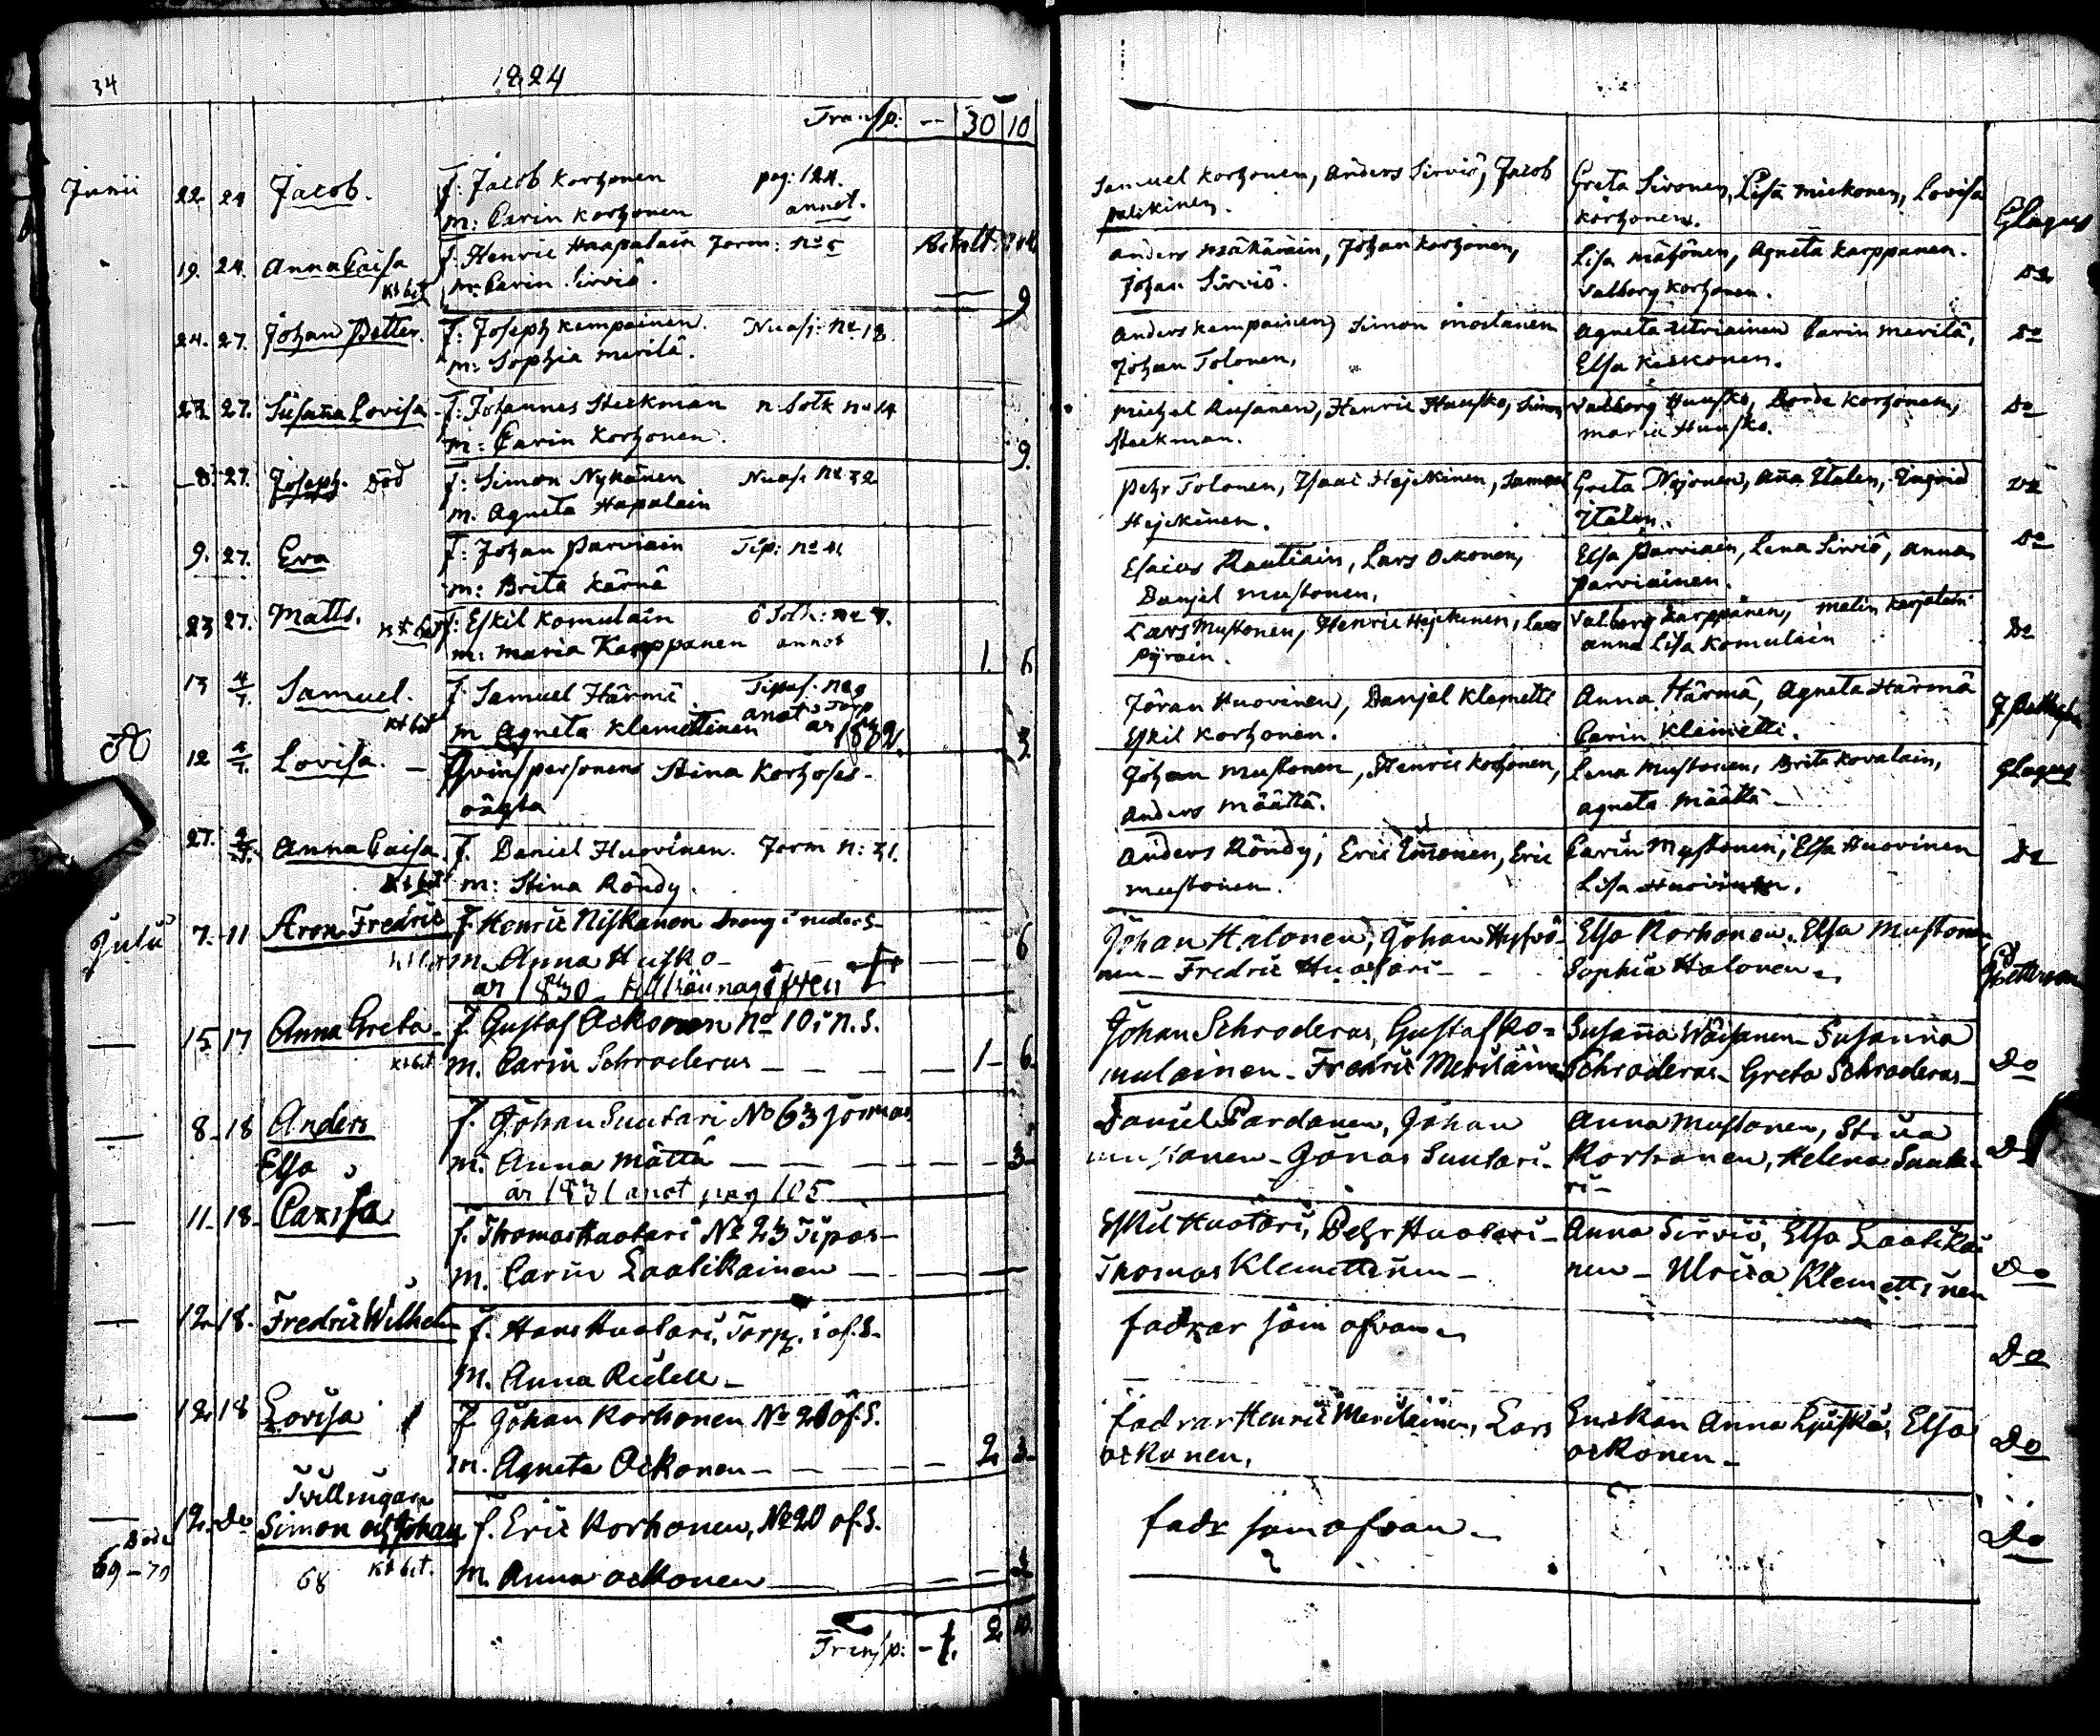 34
1824
Transp: -- 30 10
Junii 22 24 Jacob. f: Jacob Korhonen pag: 124.
m: Carin Korhonen annot.
Samuel Korhonen, Anders Sirviö, Jacob
Greta Sironen, Lisa Miekonen, Lovisa
Korhonen.
Elagus
19. 24. Anna Caisa f: Henric Haapalain Jorm: No 5
Kt bet m: Carin Sirviö. 9
Anders Mäkäräin, Johan Korhonen,
Johan Sirviö.
Lisa Mähönen, Agneta Karppanen.
Valborg Korhonen.
Do
24. 27. Johan Petter. f: Joseph Kempainen. Nuasj: No 18
m: Sophia Merilä.
Anders Kempainen, Simon Moilanen
Johan Tolonen,
Agneta Carin Merilä,
Elsa Keskonen.
Do
27. Susana Lovisa f: Johannes Steekman n. Sotk No 14
m: Carin Korhonen. 9.
Michel Rusanen, Henric Huusko, Simon
Steekman.
Valborg Huusko, Korhonen,
Maria Huusko.
Do
8 27. Joseph. Död f: Simon Nykänen Nuasj: No 32
m. Agneta Hapalain
Pehr Tolonen, Isaac Hejckinen, Samuel
Hejckinen.
Greta Nojonen, Ana Italen, Ingrid
Italen.
Do
9. 27. Eva f: Johan Parviain Tip: No
m: Brita Kärnä
Esaias Rautiain, Lars Ockonen,
Danjel Mustonen,
Elsa Parviaen, Lena Sirviö, Anna
Parviainen.
Do
23 27. Matts. f: Eskil Komulain Ö Sotk: No 7.
m: Maria Karppanen annot 1. 6
Lars Mustonen, Henric Hejckinen, Lars
Pyräin.
Valborg Karppänen, Malin Karjalain
Anna Lisa Komulain
Do
13 4/7. Samuel. f: Samuel Härmä Tipas: No 9
Kt bet m Agneta Klemettinen anot år 1832. 3.
Jöran Huovinen, Danjel Klemetti
Eskil Korhonen.
Anna Härmä, Agneta Härmä
Carin Klemetti.
12 4/7. Lovisa. — Qvinspersonens Stina Korhoses
oägta
Johan Mustonen, Henric Korhonen,
Anders Määttä.
Lena Mustonen, Brita Kovalain,
Agneta Määttä
Elagus
27. Anna Caisa f. Daniel Huovinen. Jorm n: 31.
Kt bet m: Stina Röndy.
Anders Röndy, Eric Immonen, Eric
Mustonen.
Carin Mustonen, Elsa Huovinen
Lisa Huovinen.
Do
Julii 7. 11 Aron Fredric f. Henric Niskanen dreng i neder S.
m. Anna Husko 6
år 1830
Johan Halonen, Johan
nen - Fredric Huotari
Elsa Korhonen. Elsa Mustonen
Sophia Halonen.
15 17 Anna Greta f. Gustaf Ockonen No 10 i n. S.
Kt bet m. Carin Schroderus — 1 - 6
Johan Schroderus, Gustaf Ko=
mulainen - Fredric Meriläinen
Susaña Wäisänen - Susanna
Schroderus - Greta Schroderus
Do
8 - 18 Anders f. Johan Suutari No 63 Jormas
Elsa m. Anna Mättä — 3 -
år 1831 anot pag 105
Daniel Pardanen, Johan
Mustonen - Jonas Suutari
Anna Mustonen, Stina
Korhonen, Helena Suuta
ri -
11 - 18 Caisa f. Thomas Huotari No 23 Tipas
m. Carin Laatikainen —
Eskil Huotari, Pehr Huotari -
Thomas Klemettinen -
Anna Sirviö, Elsa Laatikai
nen - Ulrica Klemettinen
Do
12 - 18. Fredric Wilhelm f. Hans Huotari, Torp. i of. S.
m. Anna Ridell -
fadrar som ofvan
Do
12 18 Lovisa f Johan Korhonen No 20 of. S.
m. Agneta Ockonen — 2 3 -
fadrar Henric Meriläinen, Lars
Ockonen.
Enckan Anna Elsa
Ockonen -
Do
Tvillingar
12. Do Simon och Johan f. Eric Korhonen, No 20 of. S.
69 - 70 68 Kt bet. m. Anna Ockonen
fadr som ofvan -
Do
Transp: - 1. 2